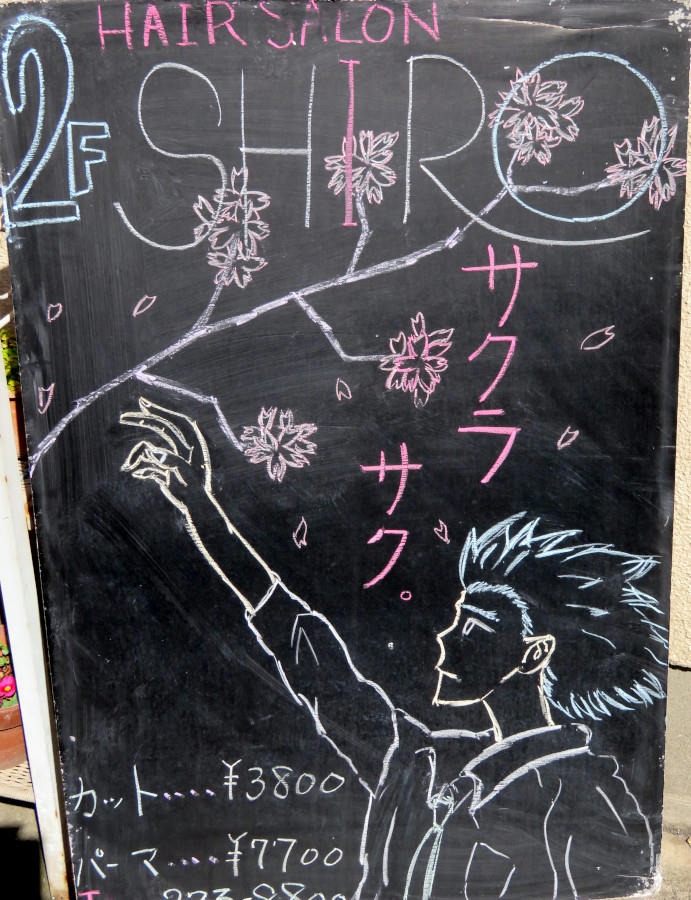 HAIR SALON
2F
SHIRO
サクラ
サク。
カット....¥3800
パーマ....¥7700